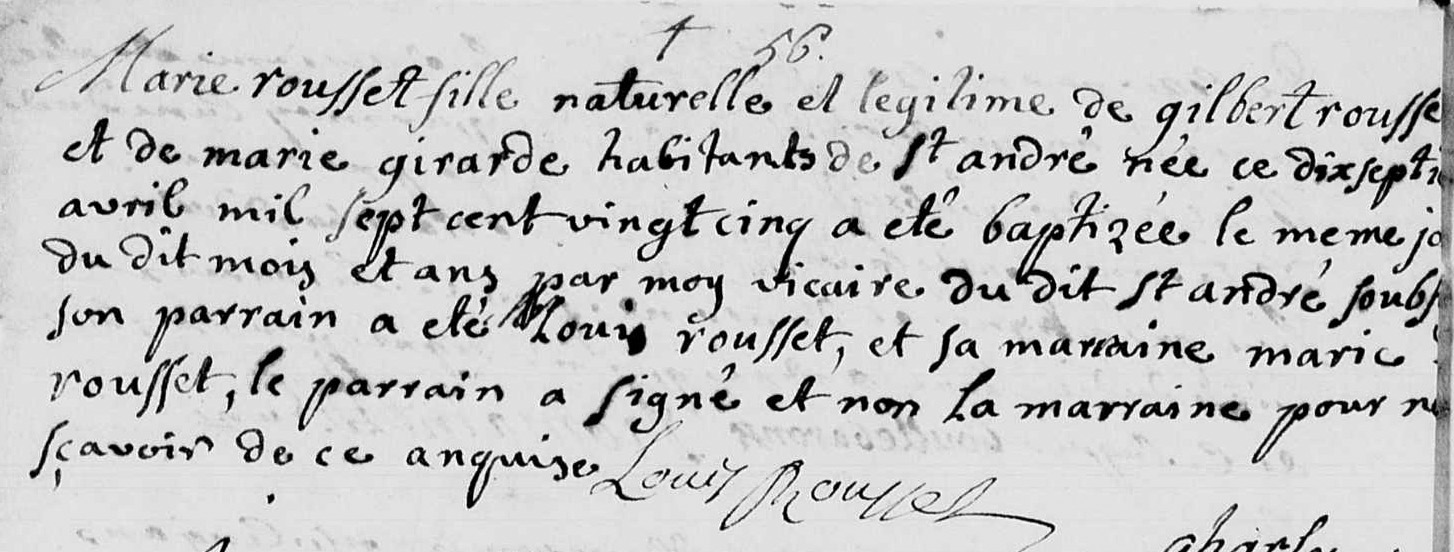 † 56.
Marie rousset fille naturelle et legitime de gilbert rousse
et de marie girarde habitants de St andré née ce dixsepti
avril mil sept cent vingt cinq a eté baptizée le meme jo
du dit mois et ans par moy vicaire du dit St andré soubs
son parrain a eté Louis rousset, et sa marraine marie
rousset, le parrain a signé et non la marraine pour n
sçavoir de ce anquize Louis Rousset
charl